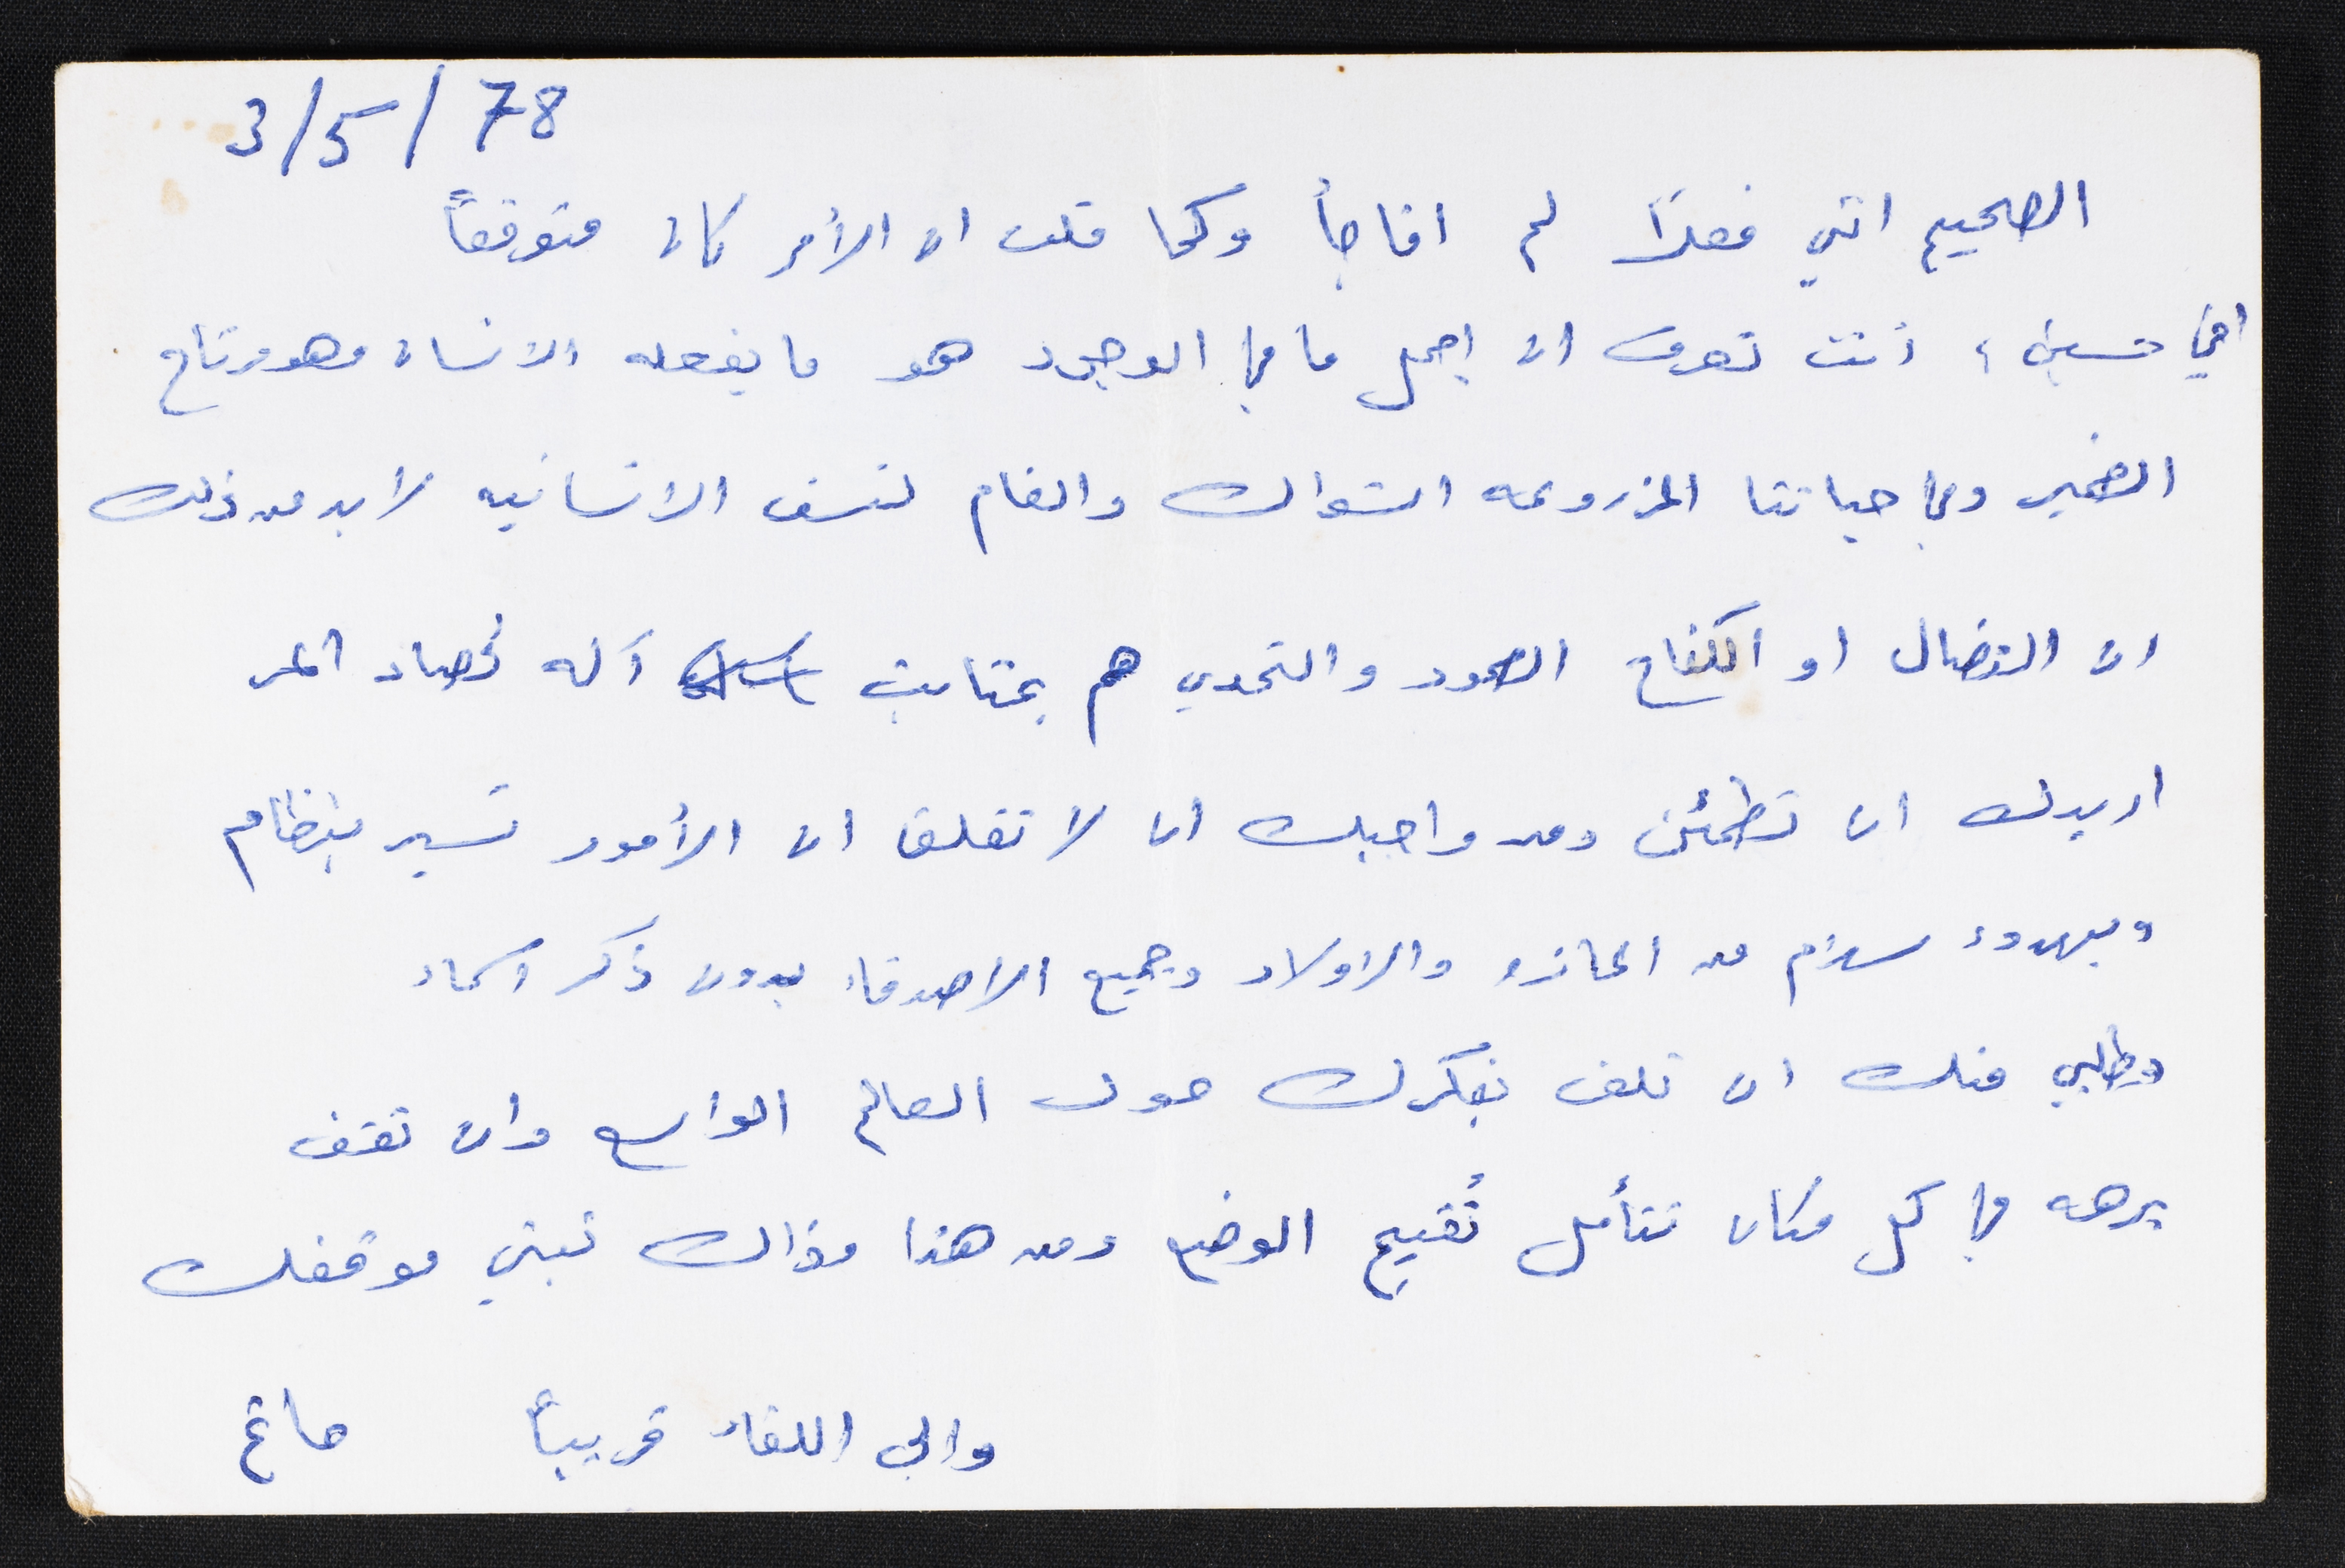 3/5/78
الصحيح انني فعلاً لم افاجأ وكما قلت ان الأمر كان متوقعاً
اخي حسين، أنت تعرف ان اجمل ما في الوجود هو ما يفعله الانسان وهو مرتاح
الضمير وفي حياتنا المزروعه اشواك والغام لنسف الانسانيه لا بد من ذلك
ان النضال او الكفاح الصمود والتحدي هم بمثابت آله لحصاد المر
اريدك ان تطمئن ومن واجبك ان لا تقلق ان الأمور تسير بإنتظام
وبهدوء سلام من العائله والاولاد وجميع الأصدقاء بدون ذكر اسماء
وطلبي منك ان تلف بفكرك حول العالم الواسع وان تقف
برهه في كل مكان تتأمل تُقيم الوضع ومن هذا وذاك تبني موقفك
والى اللقاء قريباً حاتم